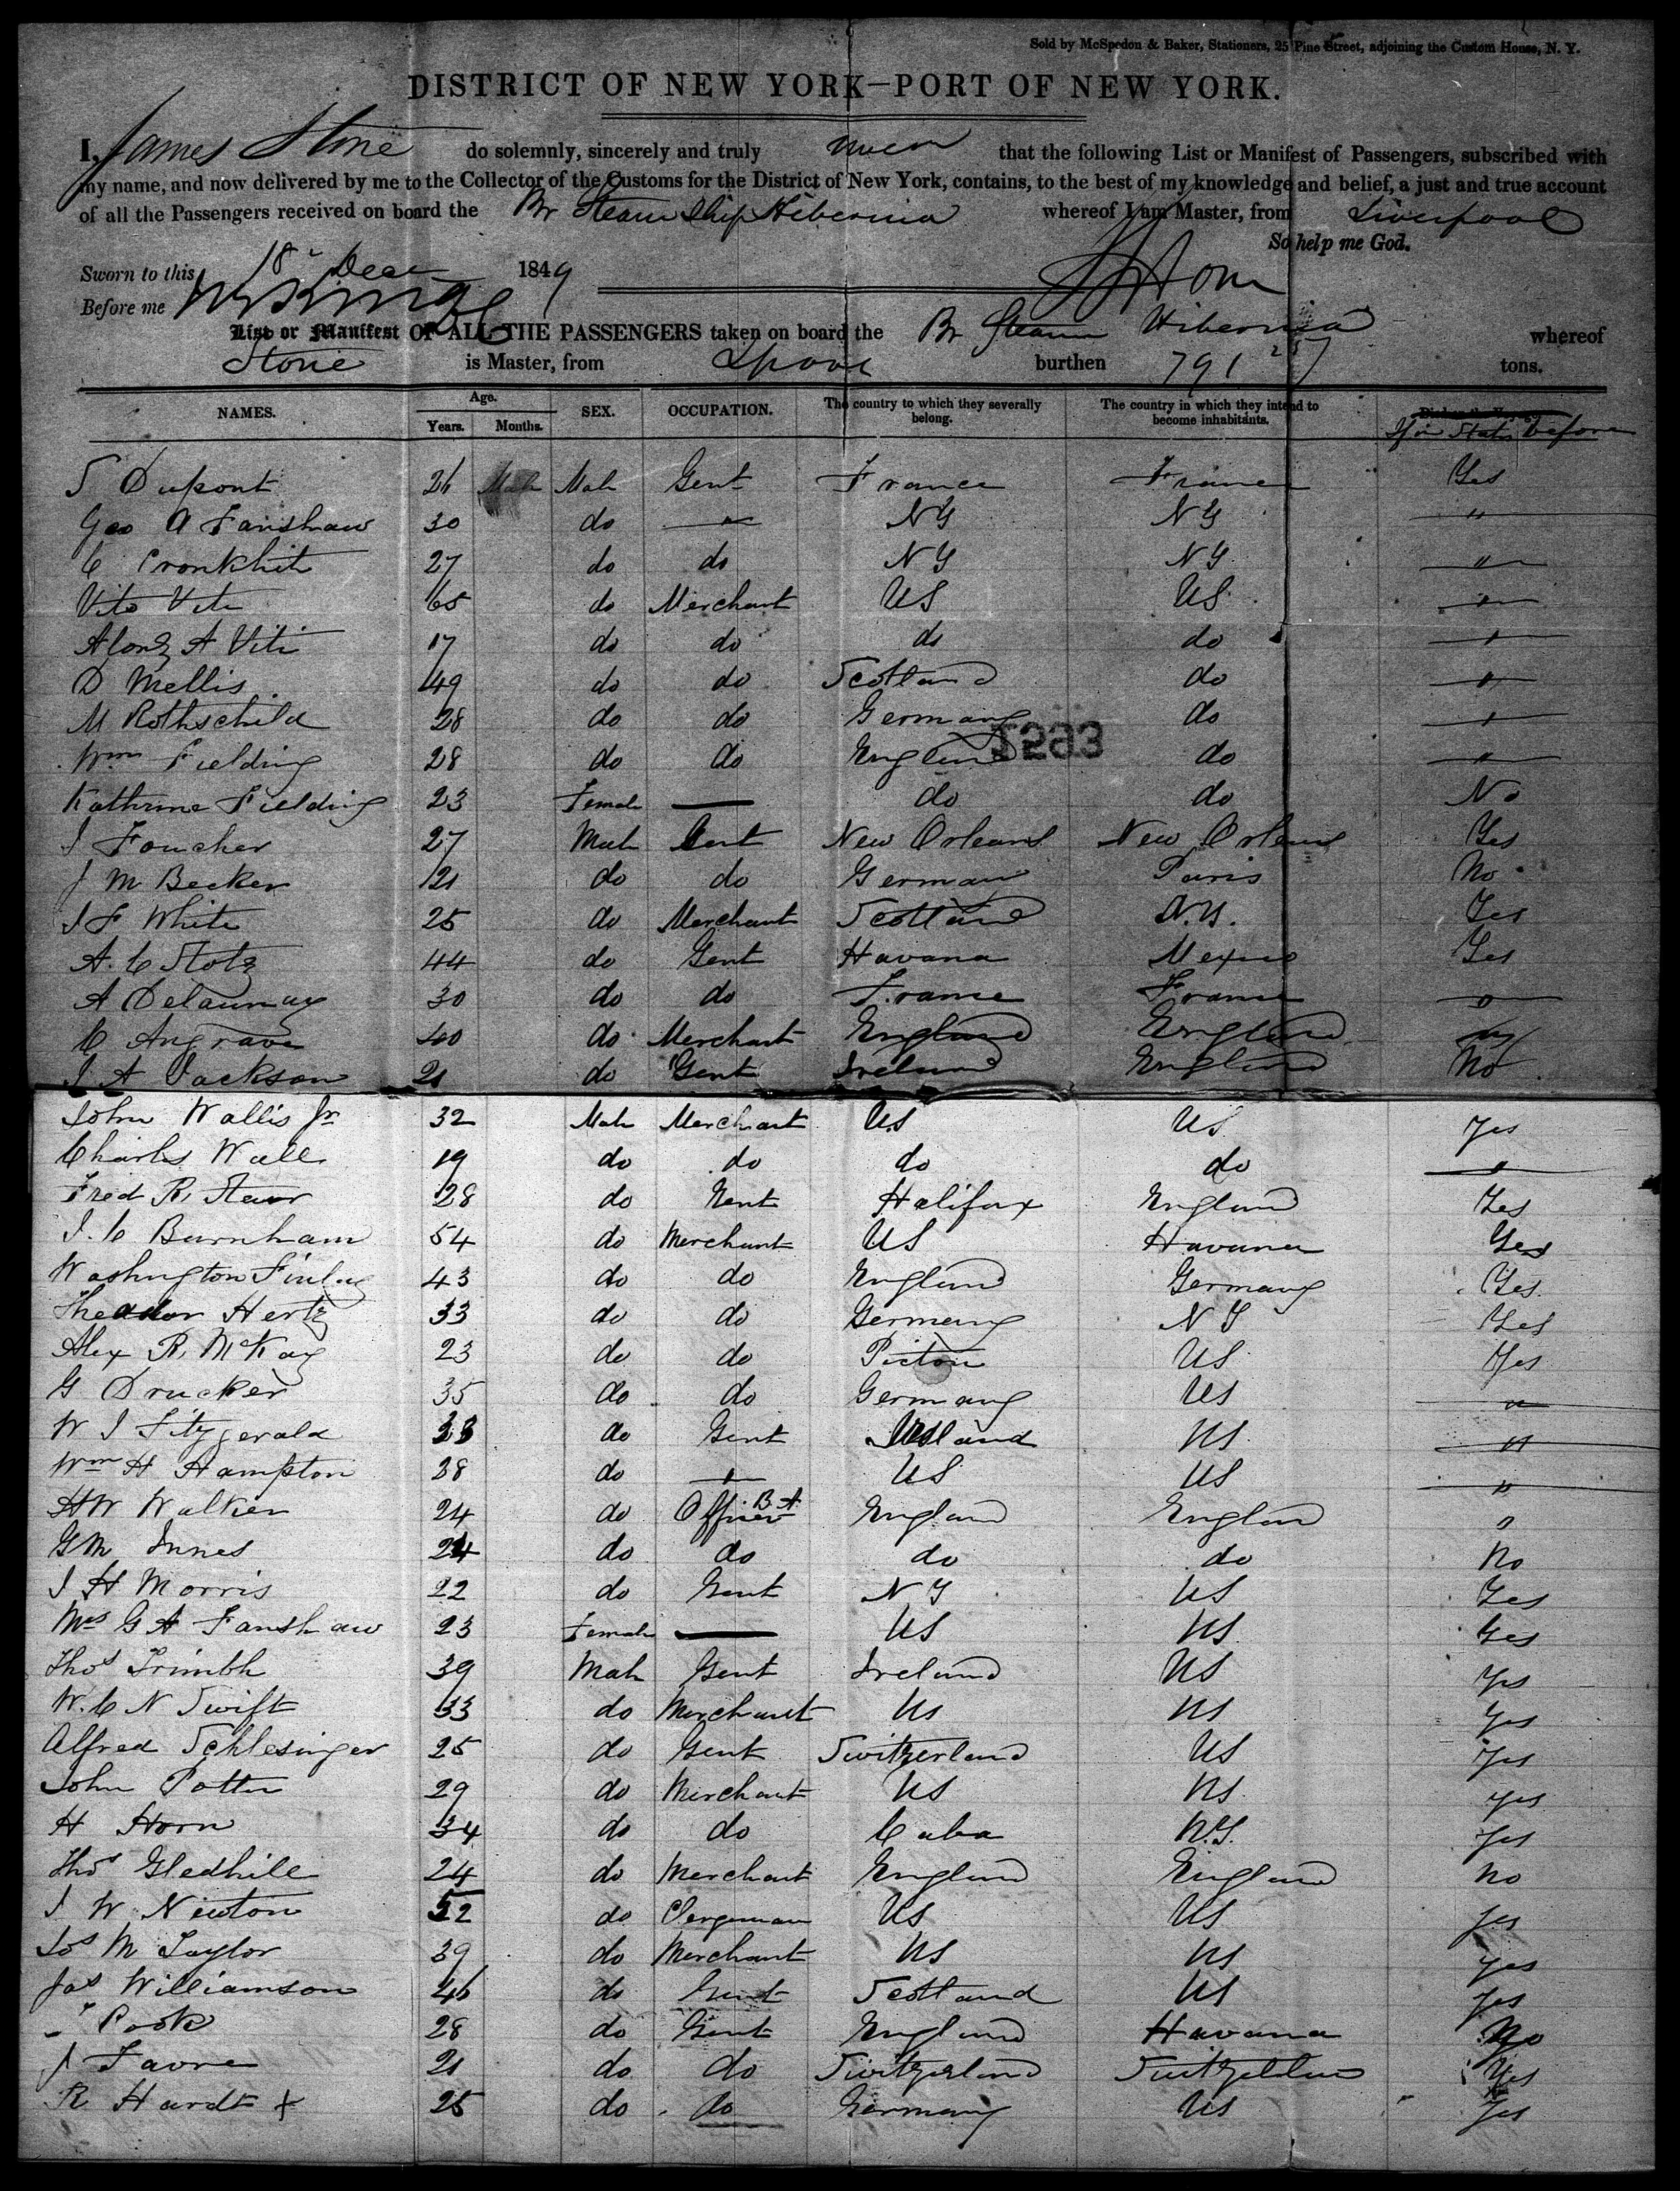 Sold by McSpedon & Baker, Stationers, 25 Pine Street, adjoining the Custom House, N. Y.
DISTRICT OF NEW YORK—PORT OF NEW YORK.
I, James Stone do solemnly, sincerely and truly swear that the following List or Manifest of Passengers, subscribed with
my name, and now delivered by me to the Collector of the Customs for the District of New York, contains, to the best of my knowledge and belief, a just and true account
of all the Passengers received on board the Br Steam Ship Hibernia whereof I am Master, from Liverpool
So help me God.
Sworn to this 18 Decr 1849 J Stone
Before me
List or Manifest OF ALL THE PASSENGERS taken on board the Br Steam Hibernia whereof
Stone is Master, from Lpool burthen 791 tons.
NAMES. Age. Years. Months. SEX. OCCUPATION. The country to which they severally belong. The country in which they intend to become inhabitants. If in States before
Dupont 26 Male Gent France France Yes
Geo A Fanshaw 30 do — NY NY "
C Cronkhite 27 do do NY NY "
Vito Viti 65 do Merchant US US "
Alonz A Viti 17 do do do do "
D Mellis 49 do do Scotland do "
M Rothschild 28 do do Germany do "
Wm Fielding 28 do do England do "
Kathrine Fielding 23 Female — do do No
J Foucher 27 Male Gent New Orleans New Orleans Yes
J M Becker 21 do do German Paris No
J F White 25 do Merchant Scotland N.Y. Yes
A. C Stotz 44 do Gent Havana Mexico Yes
A Delaunay 30 do do France France "
C Angrave 40 do Merchant England England
J A Jackson 21 do Gent Ireland England No
John Wallis Jr 32 Male Merchant US US Yes
Charles Wall 19 do do do do "
Fred R. 28 do Gent Halifax England Yes
J. C Burnham 54 do Merchant US Havana Yes
Washington Finlay 43 do do England Germany Yes
Theodor Hertz 33 do do Germany NY Yes
Alex R. McKay 23 do do Pictou US Yes
G Drucker 35 do do Germany US "
W J Fitzgerald 33 do Gent Ireland US "
Wm H Hampton 28 do " US US "
HW Walker 24 do Officer B.A. England England "
G M Innes 24 do do do do No
J H Morris 22 do Gent NY US Yes
Mrs G A Fanshaw 23 Female — US US Yes
Thos Trimble 39 Male Gent Ireland US Yes
W. C N Swift 33 do Merchant US US Yes
Alfred Schlesinger 25 do Gent Switzerland US Yes
John Potter 29 do Merchant US US yes
H Horn 34 do do Cuba N.Y. Yes
Thos Gledhill 24 do Merchant England England No
J W Newton 52 do Clergeman US US yes
Jos M Taylor 39 do Merchant US US yes
Jas Williamson 46 do Gent Scotland US yes
" Cook 28 do Gent England Havana No
J Favre 21 do do Switzerland Switzeldn Yes
R Hardt + 25 do do Germany US Yes